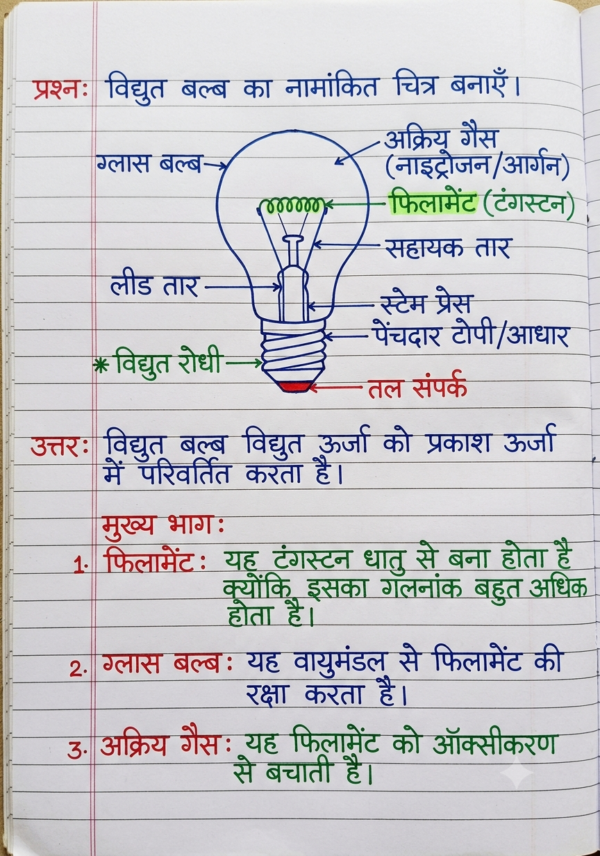 प्रश्न: विद्युत बल्ब का नामांकित चित्र बनाएँ।
ग्लास बल्ब
अक्रिय गैस
(नाइट्रोजन/आर्गन)
फिलामेंट (टंगस्टन)
सहायक तार
लीड तार
स्टेम प्रेस
पेंचदार टोपी/आधार
* विद्युत रोधी
तल संपर्क
उत्तर: विद्युत बल्ब विद्युत ऊर्जा को प्रकाश ऊर्जा
में परिवर्तित करता है।
मुख्य भाग:
1. फिलामेंट: यह टंगस्टन धातु से बना होता है
क्योंकि इसका गलनांक बहुत अधिक
होता है।
2. ग्लास बल्ब: यह वायुमंडल से फिलामेंट की
रक्षा करता है।
3. अक्रिय गैस: यह फिलामेंट को ऑक्सीकरण
से बचाती है।